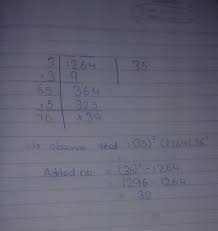 3 | 1264 | 35
+3 | 9
65 | 364
+5 | 325
70 | +39
we observe that (35)² < 1264 < 36²
Added no = (36)² - 1264
= 1296 - 1264
= 32